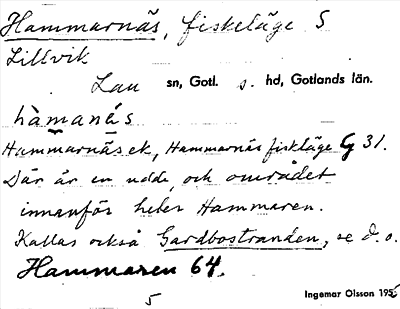 Hammarnäs, fiskeläge S
Lillvik
Lau sn, Gotl. s. hd, Gotlands län.
hàmanä́s
Hammarnäs ek, Hammarnäs fiskläge G 31.
Där är en udde, och området
innanför heter Hammaren.
Kallas också Gardbostranden, se d.o.
Hammaren 64.
5 Ingemar Olsson 195